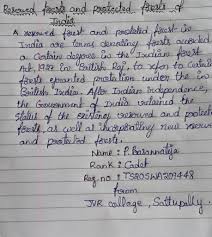 Reserved forests and protected forests of
India
A reserved forest and protected forest in
India are terms denoting forests accorded
a certain degrees in the Indian forest
act, 1927 in "British Raj", to refer to certain
forests granted protection under the in
British India. After Indian independence,
the Government of India retained the
status of the existing reserved and protect
forests, as well as incorporating new reserved
and protected forests.
Name: P.
Rank: Cadet
Reg.no: TSROSNA209448
from
JVR college, Sattupally.